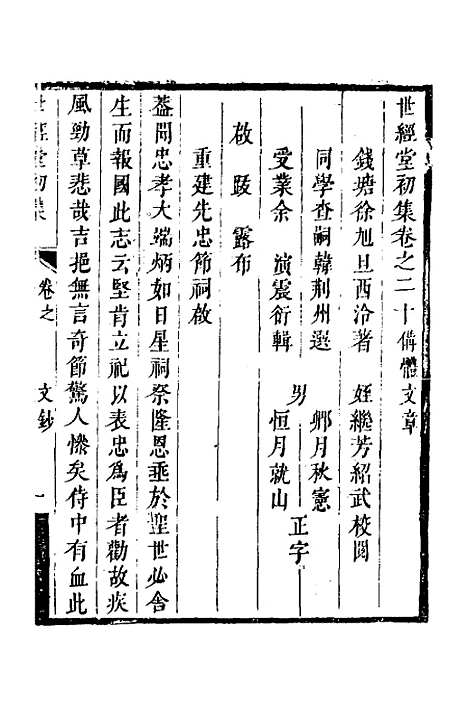 世經堂初集卷之二十偹體文章
錢塘徐旭旦西泠著　姪繼芳紹武校閱
同學查嗣韓荆州選
受業余　演震衍輯
男
鄉月秋憲
恒月就山
正字
啟　䟦　露布
重建先忠節祠啟
葢聞忠孝大端炳如日星祠祭隆恩垂於聖世必舍
生而報國此志云堅肯立祀以表忠為臣者勸故疾
風勁草悲哉吉挹無言奇節驚人慘矣侍中有血此
世經堂初集
卷之
文鈔
一